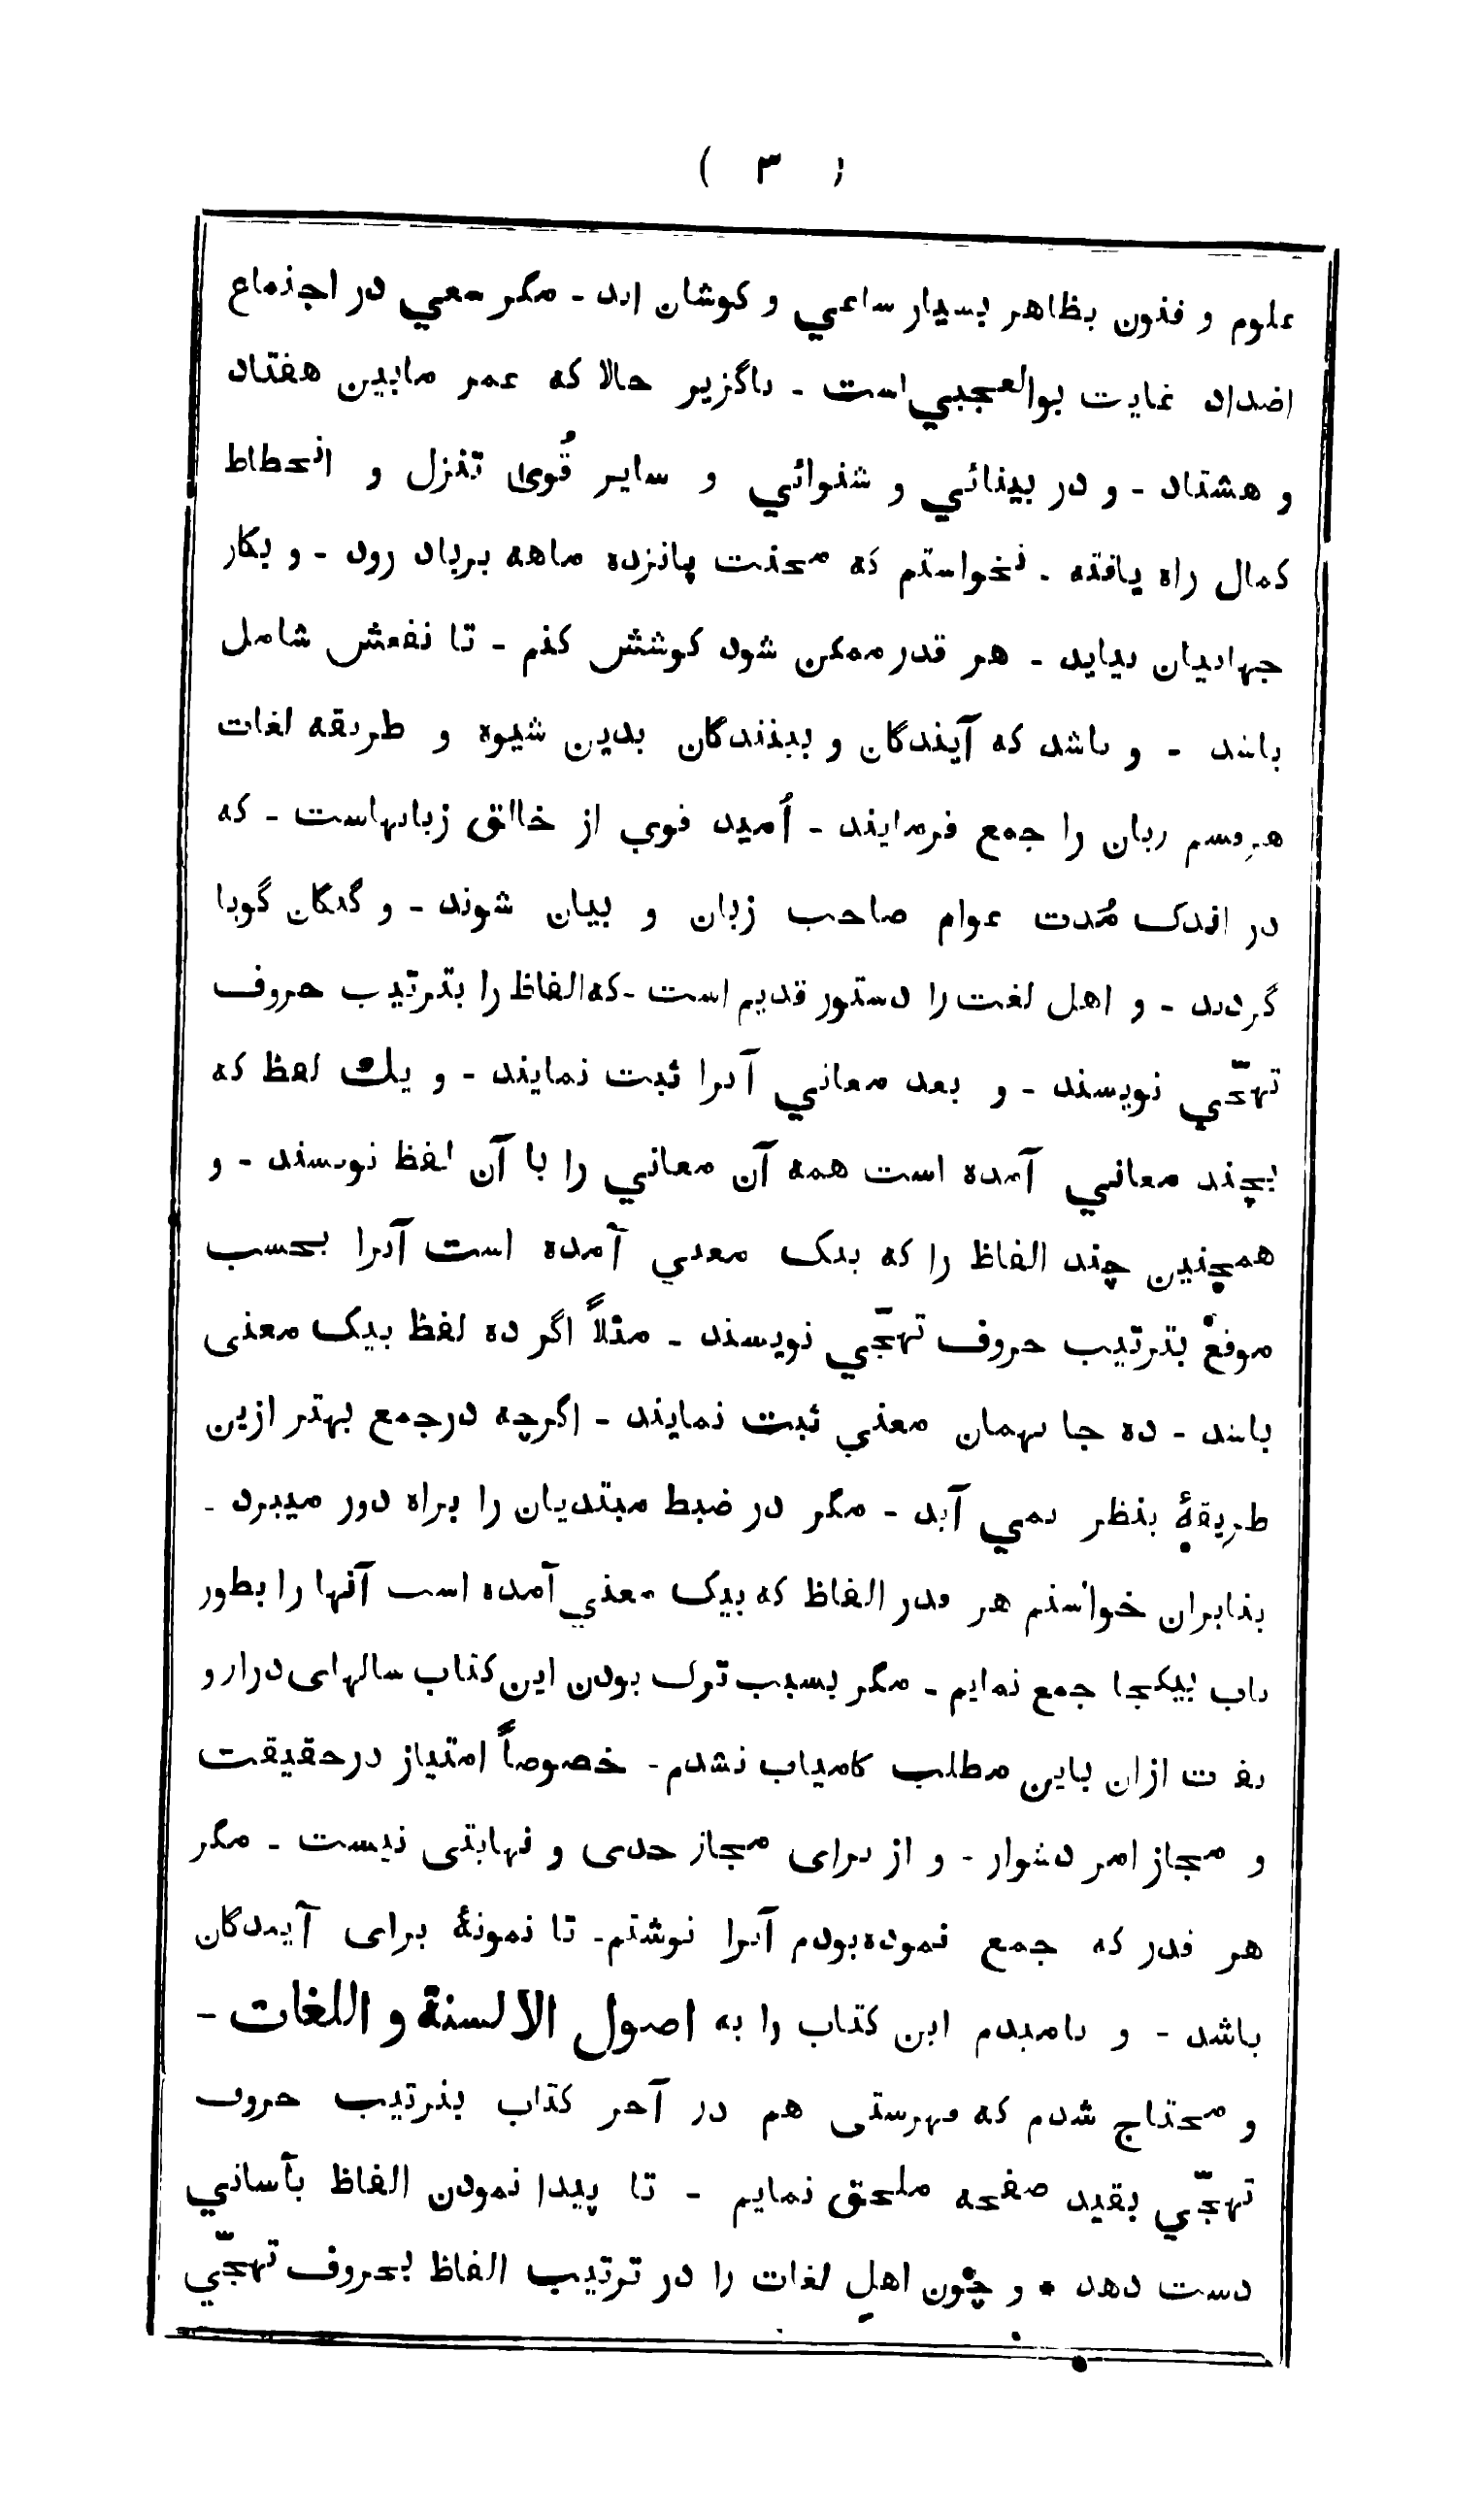 ( ٣ )
علوم و فنون بظاهر بسيار ساعي و كوشان اند - مگر سعي در اجتماع
اضداد غايت بوالعجبي است - ناگزير حالا كه عمر مابين هفتاد
و هشتاد - و در بينائي و شنوائي و ساير قُوى تنزل و انحطاط
كمال راه يافته - نخواستم كه محنت پانزده ماهه برباد رود - و بكار
جهانيان نيايد - هر قدر ممكن شود كوشش كنم - تا نفعش شامل
باشد - و باشد كه آيندگان و بينندگان بدين شيوه و طريقه لغات
هر قسم زبان را جمع فرمايند - اُميد قوي از خالق زبانهاست - كه
در اندک مُدت عوام صاحب زبان و بيان شوند - و گنگان گويا
گردند - و اهل لغت را دستور قديم است - كه الفاظ را بترتيب حروف
تهجّي نويسند - و بعد معاني آنرا ثبت نمايند - و يك لفظ كه
بچند معاني آمده است همه آن معاني را با آن لفظ نويسند - و
همچنين چند الفاظ را كه بيک معني آمده است آنرا بحسب
موقع بترتيب حروف تهجّي نويسند - مثلاً اگر ده لفظ بيک معنى
باشد - ده جا بهمان معني ثبت نمايند - اگرچه درجمع بهتر ازين
طريقهٔ بنظر نمي آيد - مگر در ضبط مبتديان را براه دور ميبرد -
بنابران خواستم هر قدر الفاظ كه بيک معني آمده است آنها را بطور
باب بيكجا جمع نمايم - مگر بسبب ترک بودن اين كتاب سالهاى دراز و
ازان باين مطلب كامياب نشدم - خصوصاً امتياز درحقيقت
و مجاز امر دشوار - و از براى مجاز حدى و نهايتى نيست - مگر
هر قدر كه جمع نموده بودم آنرا نوشتم - تا نمونهٔ براى آيندگان
باشد - و ناميدم اين كتاب را به اصول الالسنة و اللغات -
و محتاج شدم كه فهرستى هم در آخر كتاب بترتيب حروف
تهجّي بقيد صفحه ملحق نمايم - تا پيدا نمودن الفاظ بآساني
دست دهد * و چون اهل لغات را در ترتيب الفاظ بحروف تهجّي